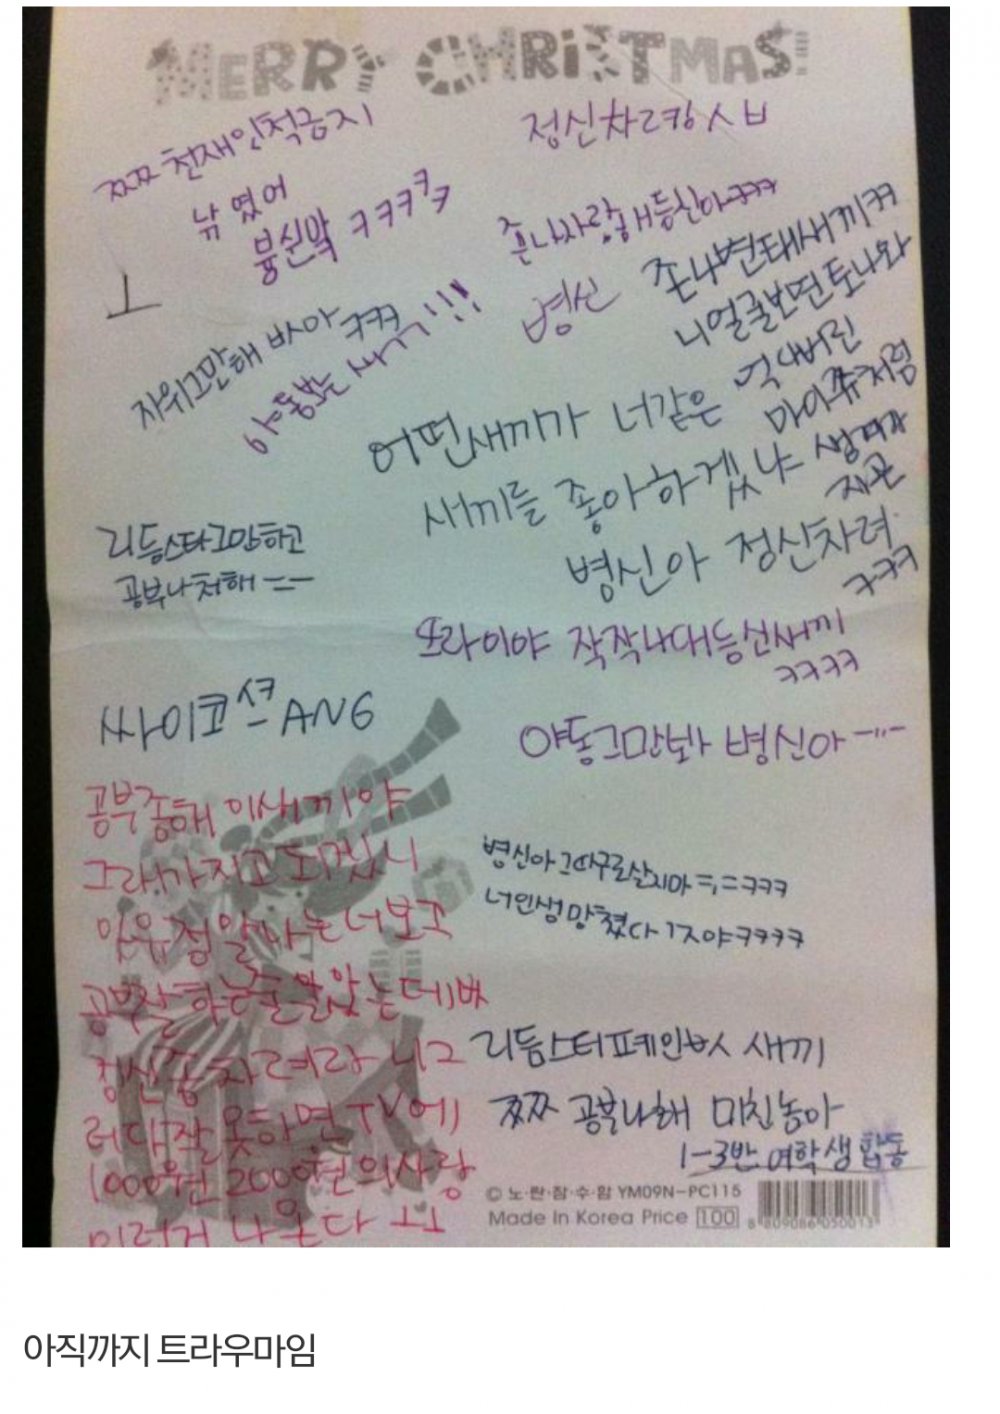 MERRY CHRISTMAS!
쯔쯔 천재인척금지
낚였어
븅쉰막 ㅋㅋㅋㅋㅋ
정신차ㄹ캉ㅅㅂ
ㅗ
존나사랑해등신아ㅋㅋㅋ
병신
존나변태새끼ㅋㅋ
니얼굴보면토나와
자위그만해 바아 ㅋㅋㅋ
야동보는 새끼!!!
어떤새끼가 너같은
새끼를 좋아하겠냐
병신아 정신차려
마이쮸처럼
생겨가
지곤
ㅋㅋㅋ
리듬스타그만하고
공부나처해 ㅡㅡ
또라이야 작작나대등신새끼
ㅋㅋㅋㅋ
싸이코 ANG
야동그만봐 병신아 ㅡㅡ
공부좀해 이새끼야
그래가지고 되겠니
나는너보고
공부잘하는줄알았는데
정신좀차려라 니그
러다잘못하면 TV에
1000원 2000원의사랑
이런거 나온다 ㅗㅗ
병신아그따구로살지마ㅡㅡㅋㅋㅋ
너인생망쳤다 ㅋㅋㅋㅋ
리듬스터페인 새끼
쯔쯔 공부나해 미친놈아
1-3반 여학생 합동
© 노·란·잠·수·함 YM09N-PC115
Made In Korea Price 100
8 809086 050013
아직까지 트라우마임